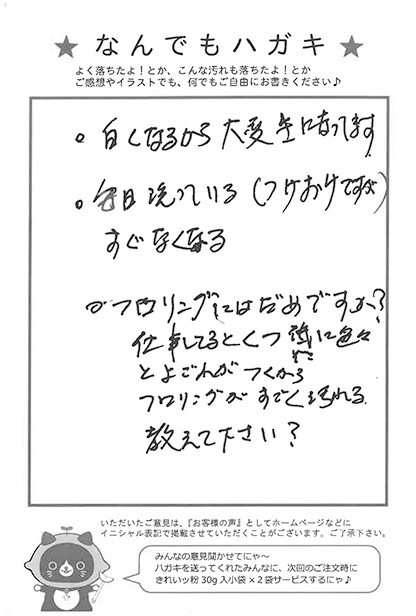 ★ なんでもハガキ ★
よく落ちたよ!とか、こんな汚れも落ちたよ!とか
ご感想やイラストでも、何でもご自由にお書きください♪
。白くなるから大変気に入ってます
。毎日洗っている(つけおけですが)
すぐなくなる
。フロリングにはだめですか?
仕事してるとくつ
に色々
とよごれがつくから
フロリングがすごく汚れる
教えて下さい?
いただいたご意見は、『お客様の声』としてホームページなどに
イニシャル表記で掲載させていただくことがございます。ご了承下さい。
みんなの意見聞かせてにゃ〜
ハガキを送ってくれたみんなに、次回のご注文時に
きれいッ粉 30g 入小袋 × 2 袋サービスするにゃ♪